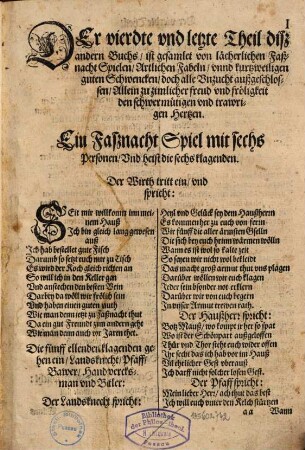 I
DEr vierdte vnd letzte Theil diß
andern Buchs / ist gesamlet von lächerlichen Faß-
nacht Spielen / Artlichen Fabeln / vnnd kurtzweiligen
guten Schwencken / doch alle Vnzucht außgeschlos-
sen / Allein zu zimlicher freud vnd fröligkeit
den schwermütigen vnd trawri-
gen Hertzen.
Ein Faßnacht Spiel mit sechs
Personen / Vnd heist die sechs klagenden.
Der Wirth tritt ein / vnd
spricht:
SEit mir willkomm inn mei-
nem Hauß
Ich bin gleich lang gewesen
auß
Ich hab bestellet gute Fisch
Darumb so setzt euch nur zu Tisch
Es wird der Koch gleich richten an
So will ich in den Keller gan
Vnd anstechen den besten Wein
Darbey da wöll wir frölich sein
Vnd haben einen guten muth
Wie man denn jetzt zu faßnacht thut
Da ein gut Freundt zum andern geht
Wie man denn auch vor Jaren thet.
Die fünff ellenden klagenden ge-
hen ein / Landsknecht / Pfaff /
Bawer / Handwercks-
man vnd Bäler:
Der Landsknecht spricht:
Heyl vnd Gelück sey dem Haußherrn
Es kommen her zu euch von fern
Wir fünff die aller ärmsten Gselln
Die sich bey euch hinnn wärmen wölln
Wann es ist wol so kalte zeit
So seyen wir nicht wol bekleid
Das macht groß armut thut vns plagen
Darüber wöllen wir euch klagen
Jeder sein bsonder not erklern
Darüber wir von euch begern
In vnser Armut trewen rath.
Der Haußherr spricht:
Botz Mauß / wo kompt jr her so spat
Wo ist der Schönpart außgeloffen
Thür vnd Thor sicht euch würdt offen
Ihr secht das ich hab vor im Hauß
Vil ehrlicher Gäst vberauß
Ich darff nicht solcher losen Gäst.
Der Pfaff spricht:
Mein lieber Herr / ach thut das best
Ich wöll euch vnter den Kelch stürtzen
aa
Wann